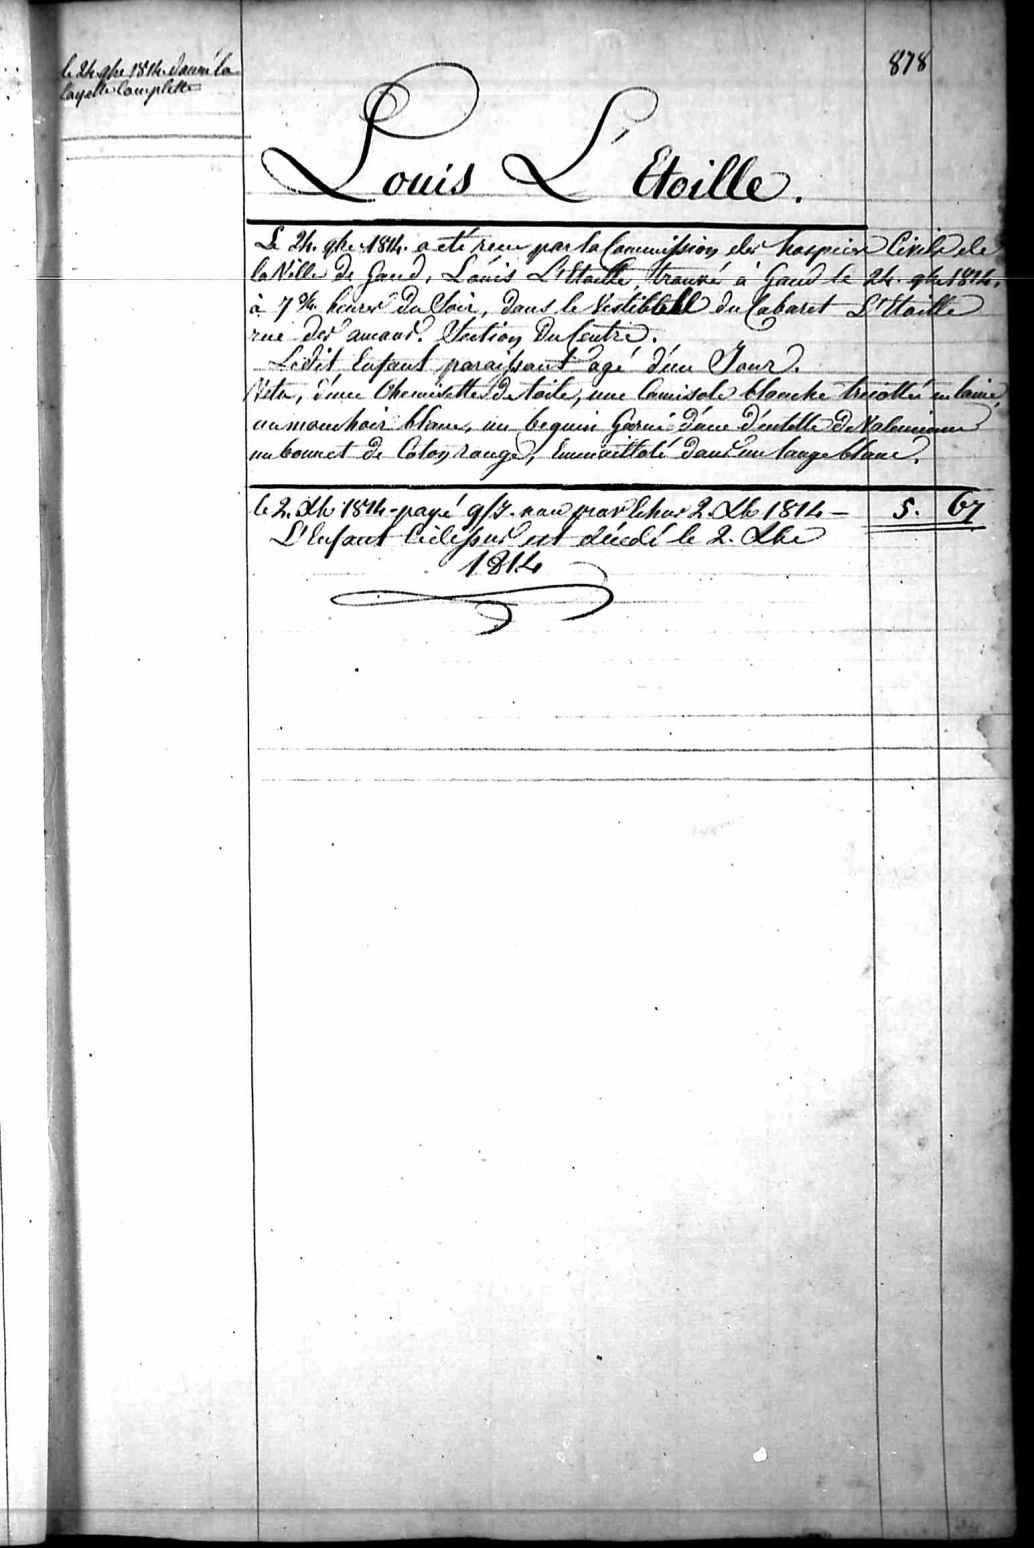 le 24 9bre 1814 donné la
layette Complette
878
Louis L'Etoille.
Le 24. 9bre 1814. a été reçu par la Commission des hospices Civils de
la Ville de Gand, Louis L'Etoille, trouvé à Gand le 24. 9bre 1814.
à 7 3/4 heures du Soir, dans le Vestibule du Cabaret L'Etoille
rue des amans. Section Du Centre.
Ledit Enfant paraissant agé d'un Jour.
Vetu, d'une Chemisette de toile, une Camisole blanche tricottée en laine,
un mouchoir blanc, un beguin Garni d'une d'entelle de Valencienne
un bonnet de Coton rouge, Emmailloté dans un lange blanc.
le 2. Xbre 1814 - payé 9/J. 2. Xbre 1814 - 5. 67
L'Enfant Cidessus est décédé le 2. Xbre
1814